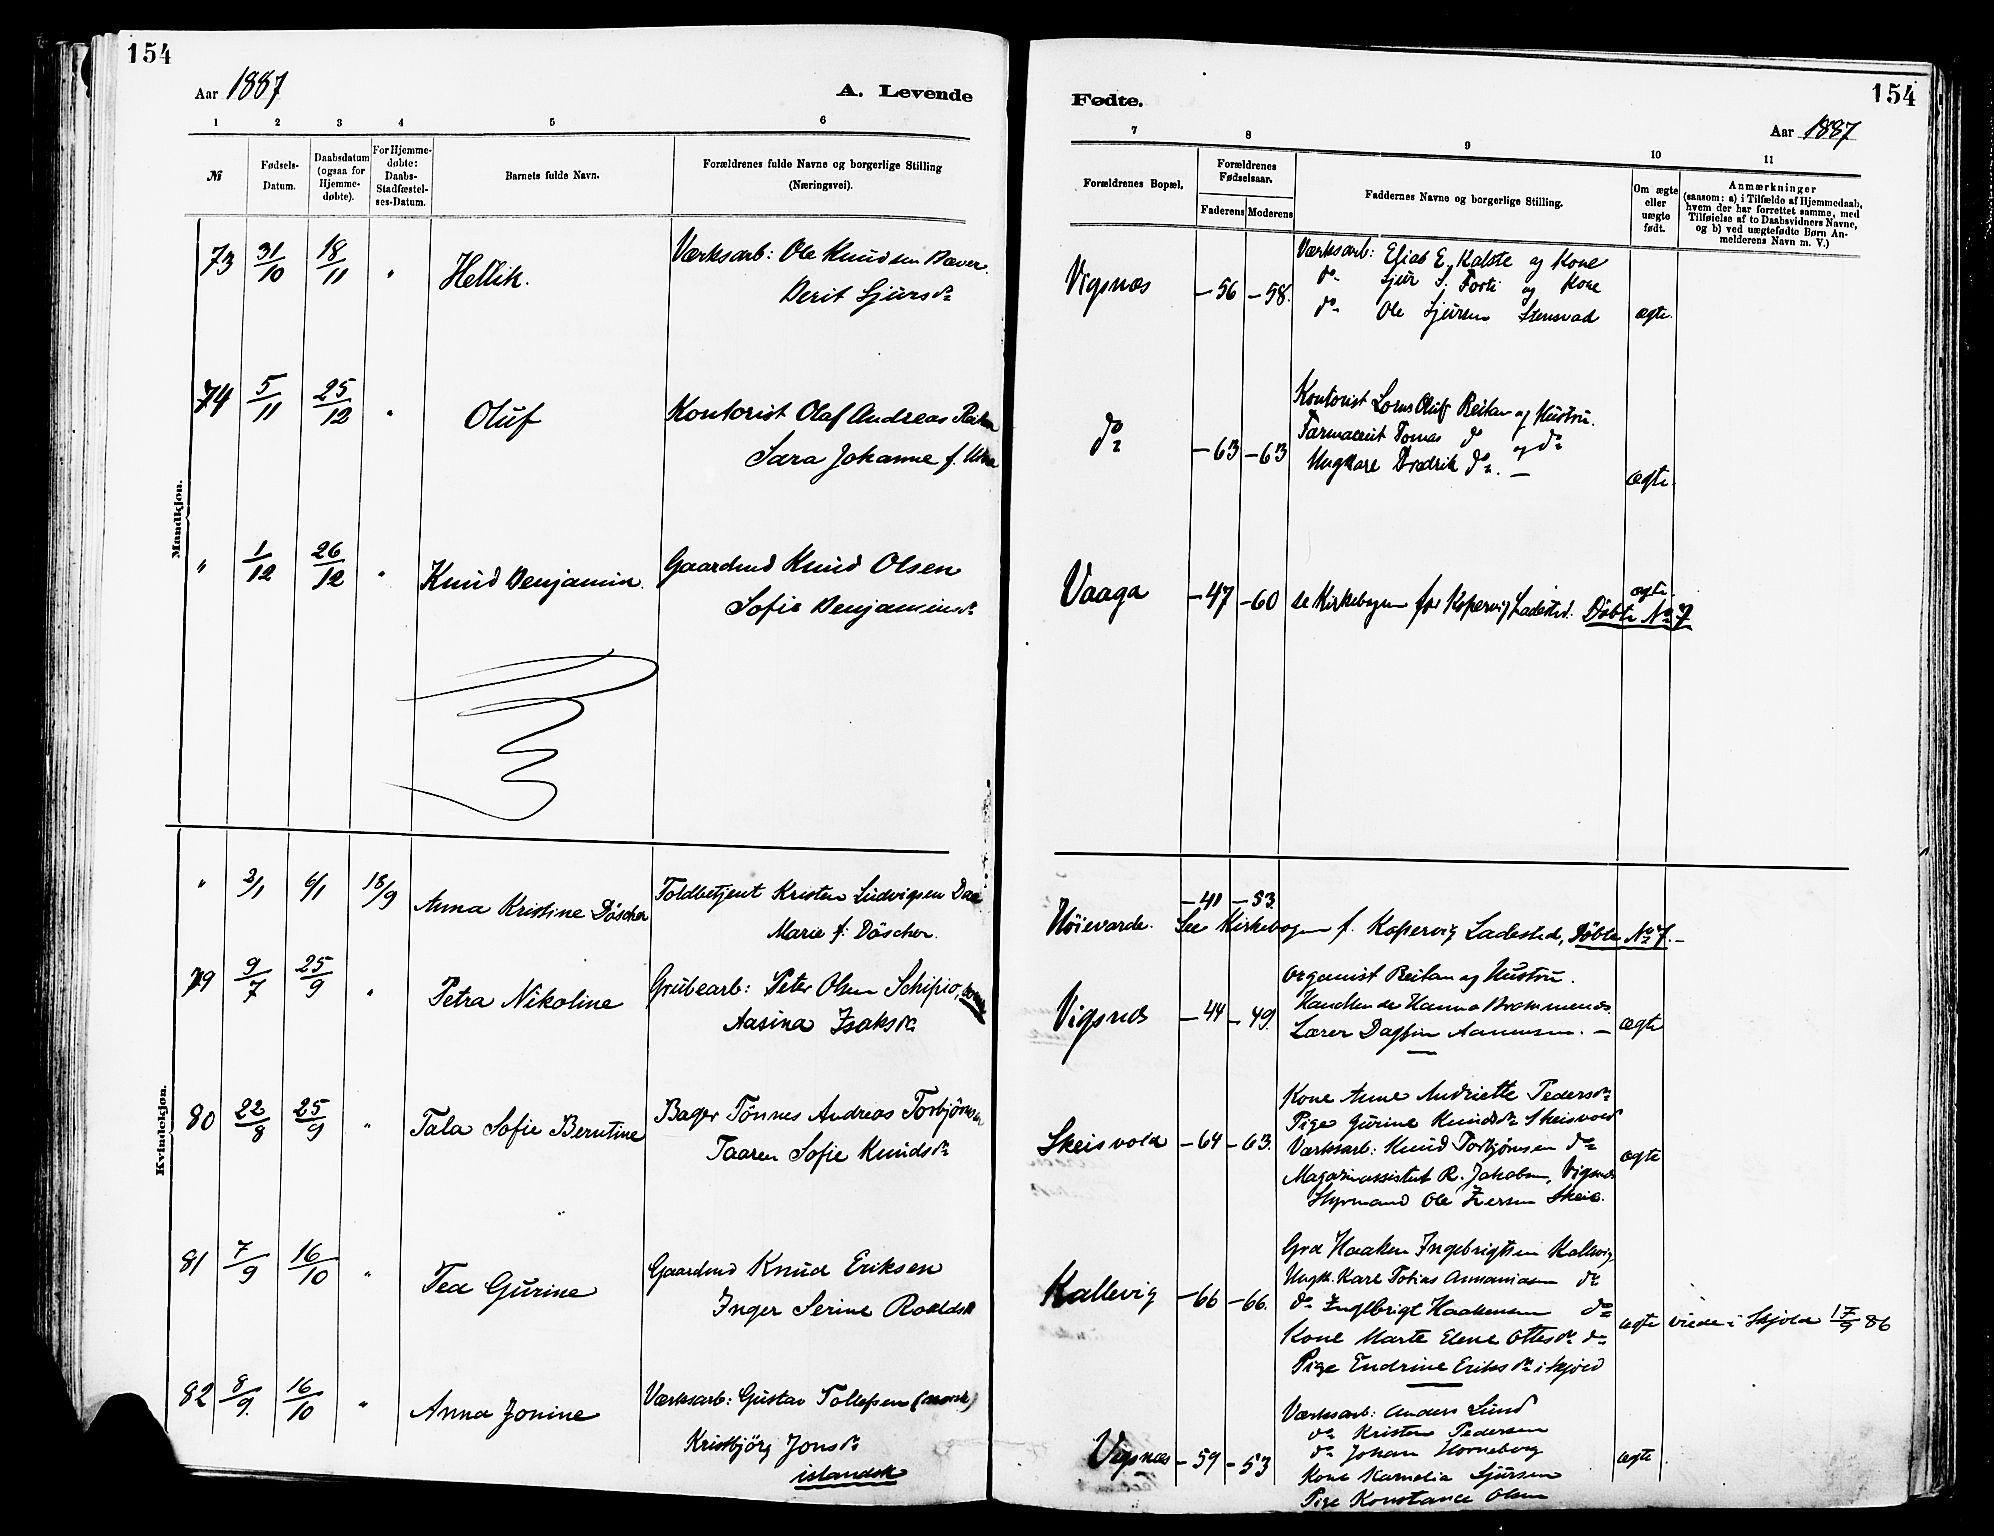 154
Aar 1887
A. Levende
1 2 3 4 5 6
№
Fødsels-
Datum.
Daabsdatum
(ogsaa for
Hjemme-
døbte).
For Hjemme-
døbte:
Daabs-
Stadfæstel-
ses-Datum.
Barnets fulde Navn.
Forældrenes fulde Navne og borgerlige Stilling
(Næringsvei).
Mandkjøn.
73 31/10 18/11 " Hellik. Værksarb: Ole Knudsen Bæver.
Berit Sjursdr
74 5/11 25/12 " Oluf Kontorist Olaf Andreas Reitan
Sara Johanne f.
" 1/12 26/12 " Knud Benjamin. Gaardmd Knud Olsen
Sofie Benjaminsdr
Kvindekjøn.
" 3/1 6/1 18/9 Anna Kristine Döscher Toldbetjent Kristen Ludvigsen Daa
Marie f: Döscher.
79 9/7 25/9 " Petra Nikoline Grubearb: Peter Olsen Schipio,
Aasina Isaksdr
80 22/8 25/9 " Tala Sofie Berntine Bager Tönnes Andreas Torbjörnsen
Taaren Sofie Knudsdr
81 7/9 16/10 " Tea Gurine Gaardmd Knud Eriksen
Inger Serine Roaldsdr
82 8/9. 16/10 " Anna Jonine Værksarb: Gustav Tollefsen (norsk)
Kristbjörg Jonsdr
islandsk
Fødte.
154
Aar 1887
7 8 9 10 11
Forældrenes Bopæl.
Forældrenes
Fødselsaar.
Faderens Moderens
Faddernes Navne og borgerlige Stilling.
Om ægte
eller
uægte
født.
Anmærkninger
(saasom: a) i Tilfælde af Hjemmedaab,
hvem der har forrettet samme, med
Tilføielse af to Daabsvidners Navne,
og b) ved uægtefødte Børn An-
melderens Navn m. V.)
Vigsnæs – 56 – 58. Værksarb: Elias E. Kalstø og Kone
do Sjur S. Forti og Kone
do Ole Sjursen Stensvad ægte.
do – 63 – 63 Kontorist Lorns Oluf Reitan og Hustru.
Farmaceut Tomas do og do
Ungkare Dredrik do. – ægte.
Vaaga – 47 – 60 se Kirkebogen for Kopervig Ladested. Döbte No 7
ægte
Høievarde. – 41 – 53.
See Kirkebogen f. Kopervig Ladested, Döbte No 7. –
Vigsnæs – 44 – 49. Organist Reitan og Hustru.
Handlende Hanna Brommenæs
Lærer Dagfin Aanensen. – ægte
Skeisvold – 64 – 63. Kone Anne Andriette Pedersdr
Pige Gurine Knudsdr Skeisvold
Værksarb: Knud Torbjörnsen do
Magazinassistent R. Jakobsen, Vigsnæs
Styrmand Ole Iversen Skeie. ægte
Kallevig – 66 – 66. Grd Haaken Ingebrigtsen Kallevig
Ungk. Karl Tobias Annaniasen do
do Ingebrigt Haakensen do
Kone Marte Elene Ottesdr do
Pige Endrine Eriksdr i Skjold
ægte viede i Skjold 17/9 86
Vigsnæs – 59 – 53 Værksarb: Anders Lund
do Kristen Pedersen
do Johan Horneborg
Kone Karnelia Sjursen
Pige Konstance Olsen
ægte